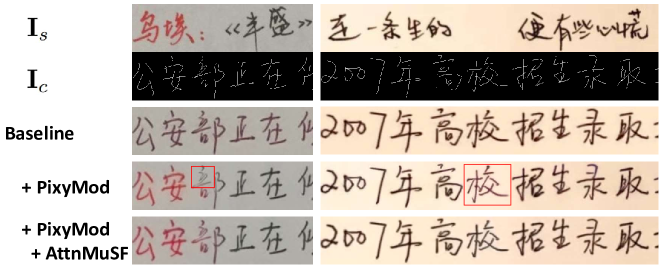 I_s 乌埃：《半蓝》 在一条生的 便有些心慌
I_c 公安部正在 2007年高校招生录取
Baseline 公安部正在 2007年高校招生录取
+ PixyMod 公安部正在 2007年高校招生录取
+ PixyMod 公安部正在 2007年高校招生录取
+ AttnMuSF